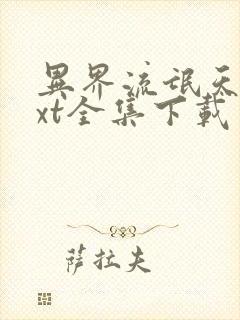 異界流氓天
xt全集下載
薩拉夫